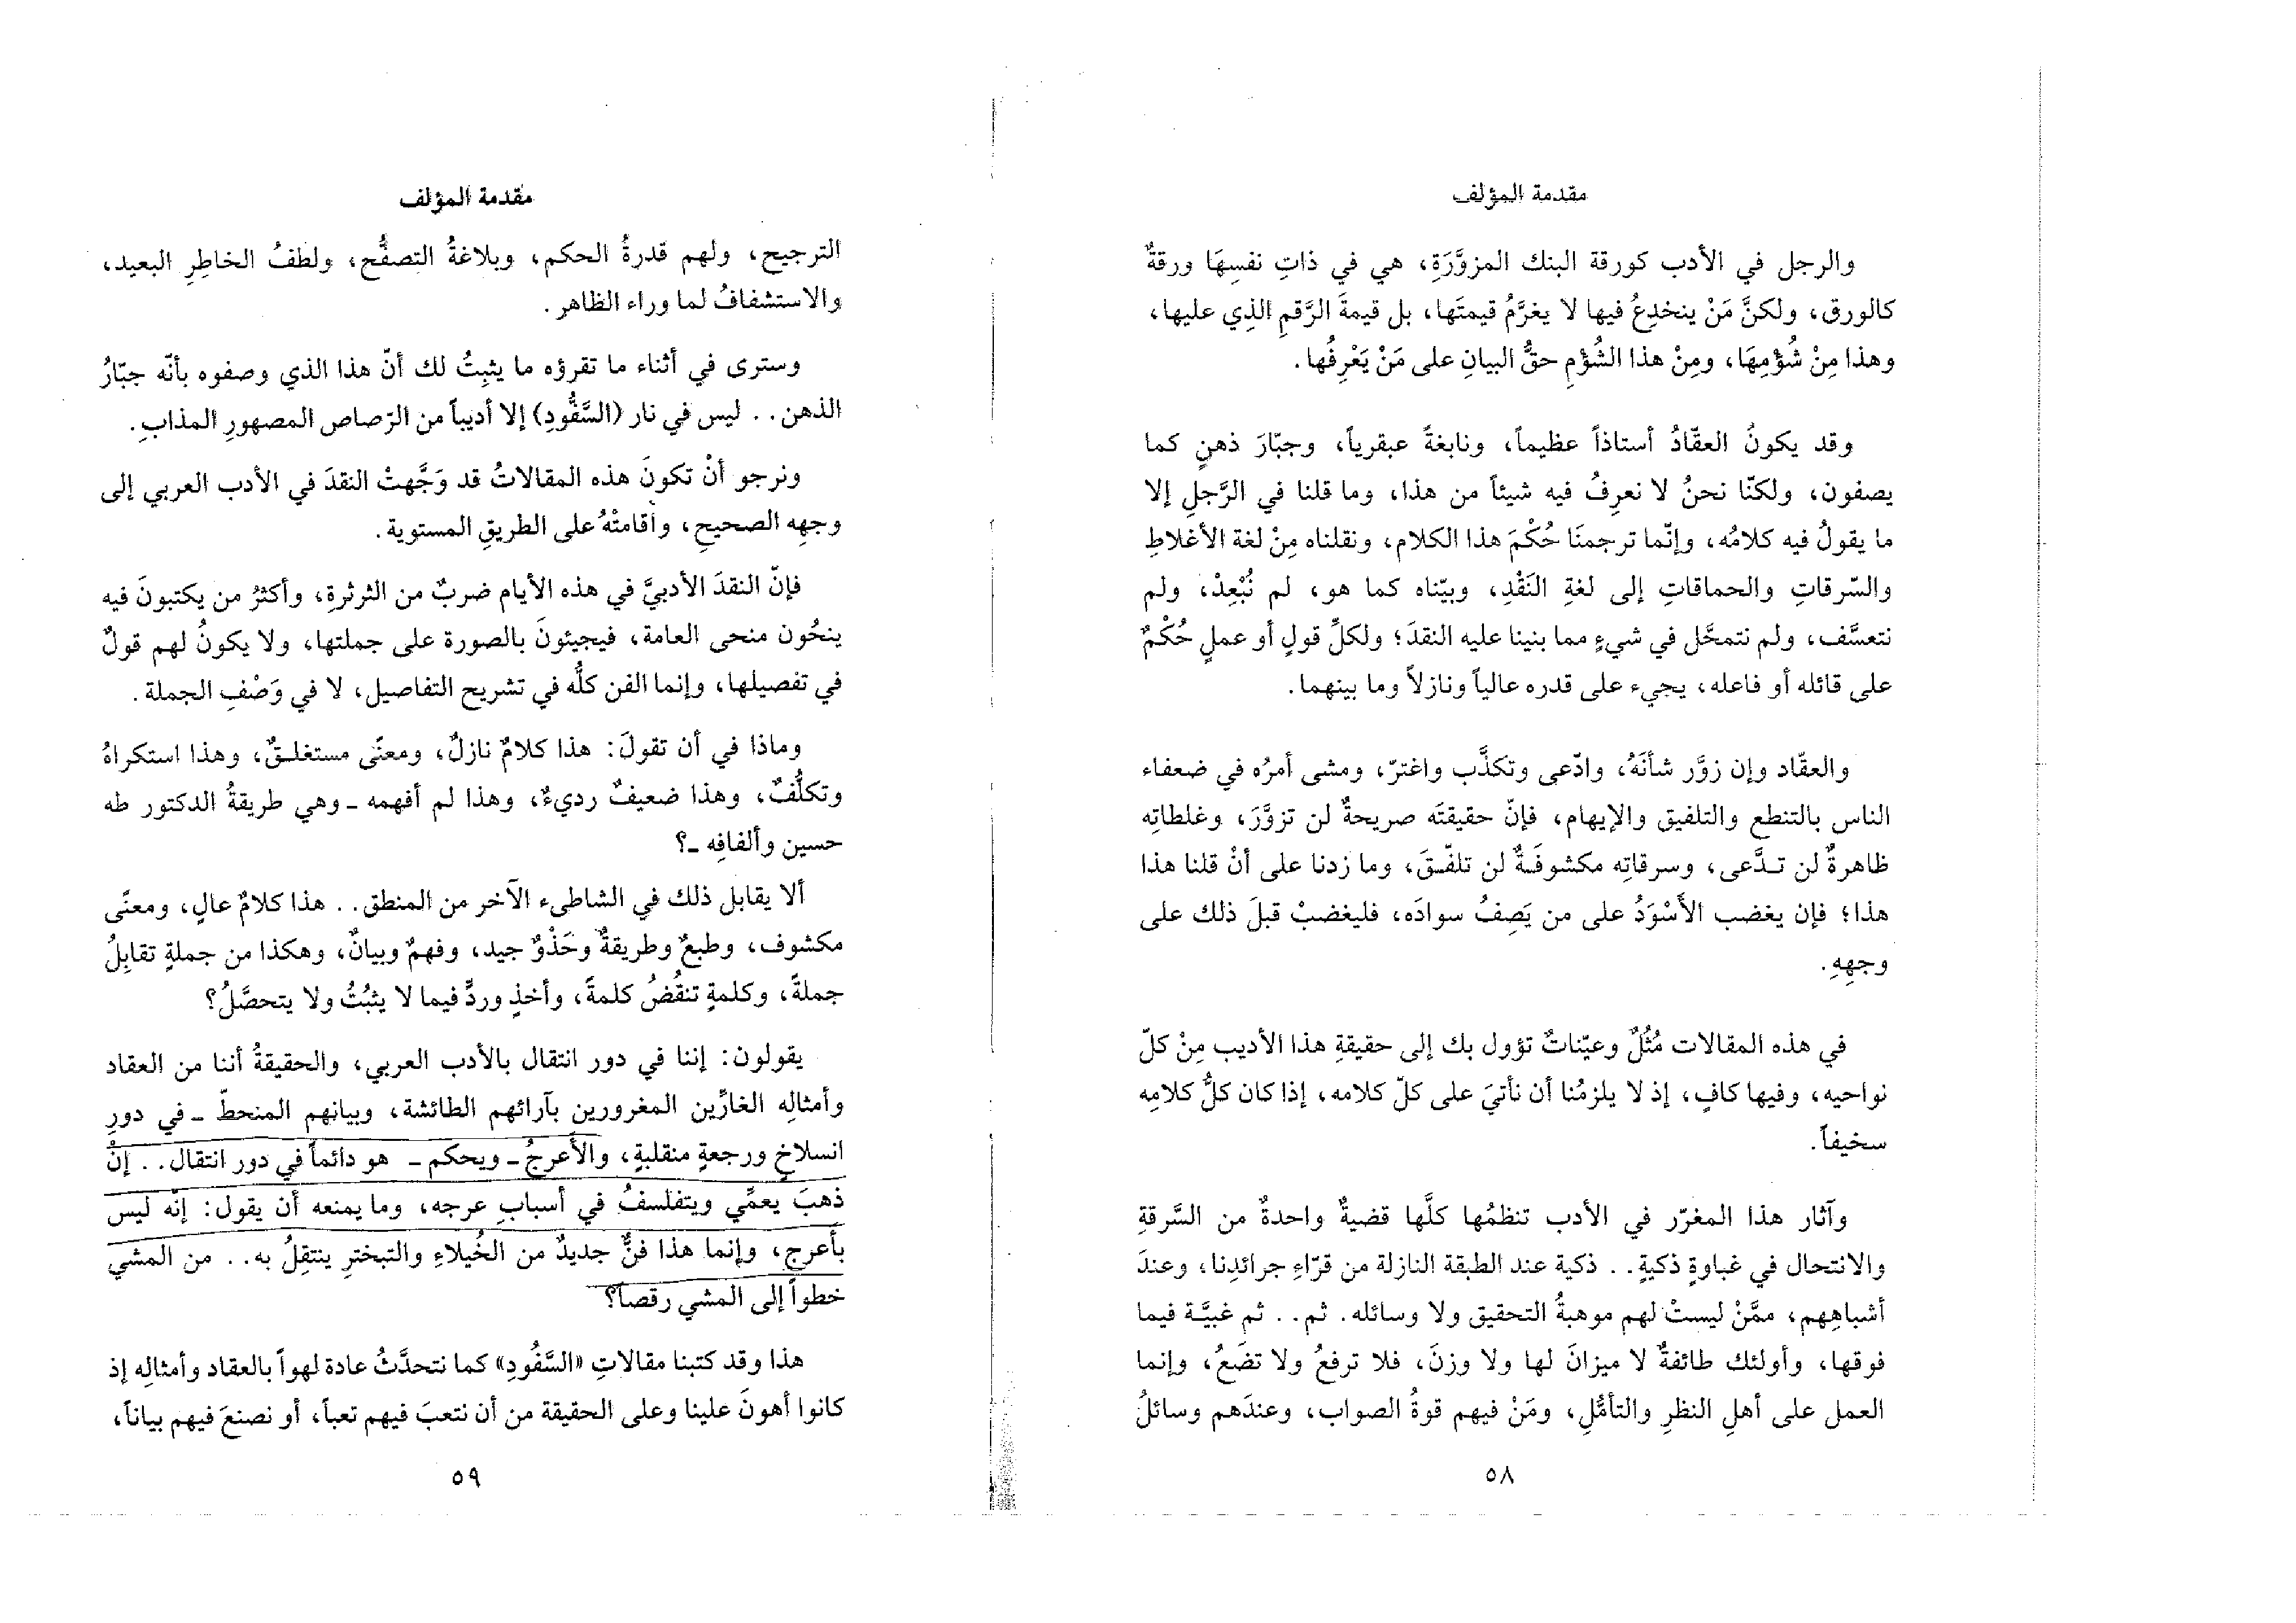 مقدمة المؤلف
والرجل في الأدب كورقة البنك المزوَّرَةِ، هي في ذاتِ نفسِهَا ورقةٌ
كالورق، ولكنَّ مَنْ ينخدِعُ فيها لا يغرَّمُ قيمتَها، بل قيمةَ الرَّقمِ الذِي عليها،
وهذا مِنْ شُؤْمِهَا، ومِنْ هذا الشُؤْمِ حقُّ البيانِ على مَنْ يَعْرِفُها.
وقد يكونُ العقّادُ أستاذاً عظيماً، ونابغةً عبقرياً، وجبّارَ ذهنٍ كما
يصفون، ولكنّا نحنُ لا نعرِفُ فيه شيئاً من هذا، وما قلنا في الرَّجلِ إلا
ما يقولُ فيه كلامُه، وإنّما ترجمنَا حُكْمَ هذا الكلام، ونقلناه مِنْ لغة الأغلاطِ
والسّرقاتِ والحماقاتِ إلى لغةِ النَقْدِ، وبيّناه كما هو، لم نُبْعِدْ، ولم
نتعسَّف، ولم نتمحَّل في شيءٍ مما بنينا عليه النقدَ؛ ولكلِّ قولٍ أو عملٍ حُكْمٌ
على قائله أو فاعله، يجيء على قدره عالياً ونازلاً وما بينهما.
والعقّاد وإن زوَّر شأنَهُ، وادّعى وتكذَّب واغترّ، ومشى أمرُه في ضعفاء
الناس بالتنطع والتلفيق والإيهام، فإنّ حقيقتَه صريحةٌ لن تزوَّرَ، وغلطاتِه
ظاهرةٌ لن تـدَّعى، وسرقاتِه مكشوفَـةٌ لن تلفّـقَ، وما زدنا على أنْ قلنا هذا
هذا؛ فإن يغضب الأَسْوَدُ على من يَصِفُ سوادَه، فليغضبْ قبلَ ذلك على
وجهِهِ.
في هذه المقالات مُثُلٌ وعيّناتٌ تؤول بك إلى حقيقةِ هذا الأديب مِنْ كلّ
نواحيه، وفيها كافٍ، إذ لا يلزمُنا أن نأتيَ على كلّ كلامه، إذا كان كلُّ كلامِه
سخيفاً.
وآثار هذا المغرّر في الأدب تنظمُها كلَّها قضيةٌ واحدةٌ من السَّرقةِ
والانتحال في غباوةٍ ذكيةٍ. . ذكية عند الطبقة النازلة من قرّاءِ جرائدِنا، وعندَ
أشباهِهم، ممَّنْ ليستْ لهم موهبةُ التحقيق ولا وسائله. ثم. . ثم غبيَّـة فيما
فوقها، وأولئك طائفةٌ لا ميزانَ لها ولا وزنَ، فلا ترفعُ ولا تضَعُ، وإنما
العمل على أهلِ النظرِ والتأمُّلِ، ومَنْ فيهم قوةُ الصواب، وعندَهم وسائلُ
٥٨
مقدمة المؤلف
الترجيح، ولهم قدرةُ الحكم، وبلاغةُ التصفُّح، ولطفُ الخاطِرِ البعيد،
والاستشفافُ لما وراء الظاهر.
وسترى في أثناء ما تقرؤه ما يثبِتُ لك أنّ هذا الذي وصفوه بأنّه جبّارُ
الذهن. . ليس في نار (السَّفُّودِ) إلا أديباً من الرّصاص المصهورِ المذابِ.
ونرجو أنْ تكونَ هذه المقالاتُ قد وَجَّهتْ النقدَ في الأدب العربي إلى
وجهِه الصحيحِ، وأقامتْهُ على الطريقِ المستوية.
فإنّ النقدَ الأدبيَّ في هذه الأيام ضربٌ من الثرثرةِ، وأكثرُ من يكتبونَ فيه
ينحُون منحى العامة، فيجيئونَ بالصورة على جملتها، ولا يكونُ لهم قولٌ
في تفصيلها، وإنما الفن كلُّه في تشريح التفاصيل، لا في وَصْفِ الجملة.
وماذا في أن تقولَ: هذا كلامٌ نازلٌ، ومعنًى مستغلـقٌ، وهذا استكراهُ
وتكلُّفٌ، وهذا ضعيفٌ رديءٌ، وهذا لم أفهمه ـ وهي طريقةُ الدكتور طه
حسين وألفافِه ـ؟
ألا يقابل ذلك في الشاطىء الآخر من المنطق. . هذا كلامٌ عالٍ، ومعنًى
مكشوف، وطبعٌ وطريقةٌ وحَذْوٌ جيد، وفهمٌ وبيانٌ، وهكذا من جملةٍ تقابِلُ
جملةً، وكلمةٍ تنقُضُ كلمةً، وأخذٍ وردٍّ فيما لا يثبُتُ ولا يتحصَّلُ؟
يقولون: إننا في دور انتقال بالأدب العربي، والحقيقةُ أننا من العقاد
وأمثالِه الغارِّين المغرورين بآرائهم الطائشة، وبيانهم المنحطّ ـ في دورِ
انسلاخٍ ورجعةٍ منقلبةٍ، والأعرجُ ـ ويحكم ـ هو دائماً في دور انتقال. . إنْ
ذهبَ يعمِّي ويتفلسفُ في أسبابِ عرجه، وما يمنعه أن يقول: إنّه ليس
بأعرج، وإنما هذا فنٌّ جديدٌ من الخُيلاءِ والتبخترِ ينتقِلُ به. . من المشي
خطواً إلى المشي رقصاً؟
هذا وقد كتبنا مقالاتِ «السَّفُودِ» كما نتحدَّثُ عادة لهواً بالعقاد وأمثالِه إذ
كانوا أهونَ علينا وعلى الحقيقة من أن نتعبَ فيهم تعباً، أو نصنعَ فيهم بياناً،
٥٩